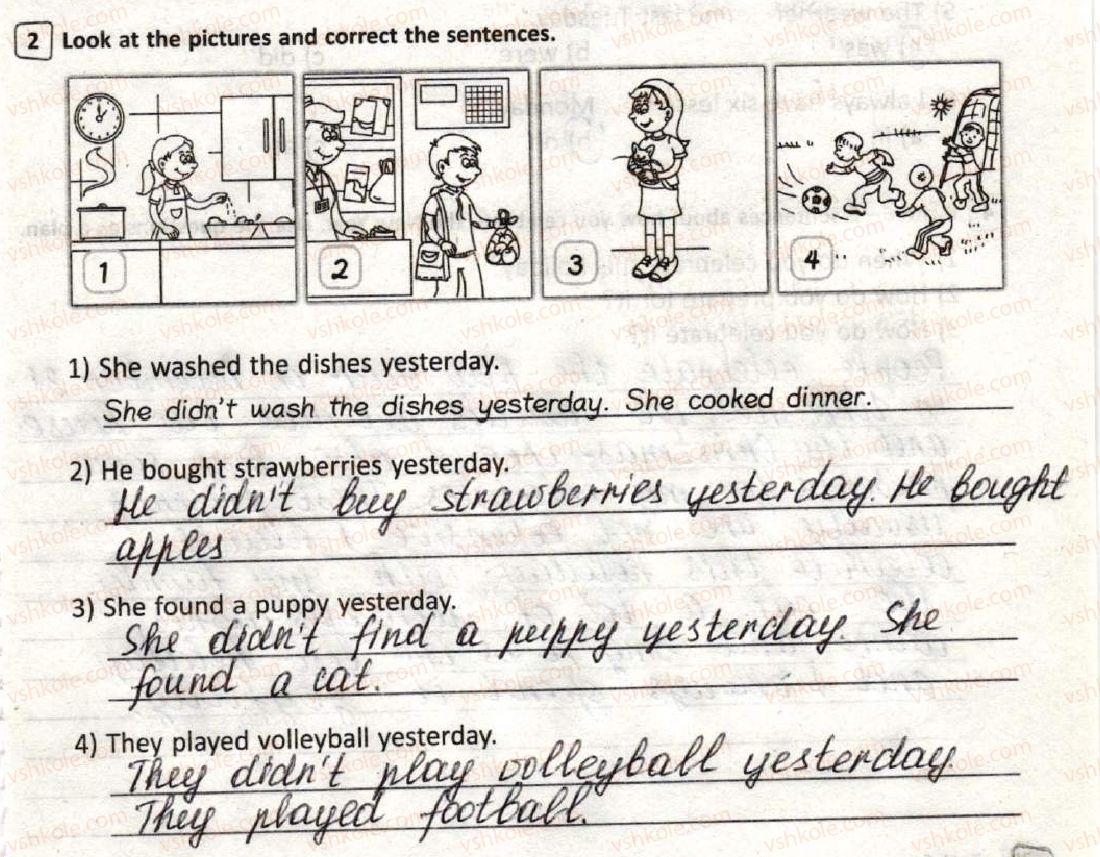 2 Look at the pictures and correct the sentences.
1
2
3
4
1) She washed the dishes yesterday.
She didn't wash the dishes yesterday. She cooked dinner.
2) He bought strawberries yesterday.
He didn't buy strawberries yesterday. He bought
apples
3) She found a puppy yesterday.
She didn't find a puppy yesterday. She
found a cat.
4) They played volleyball yesterday.
They didn't play volleyball yesterday.
They played football.
vshkole.com